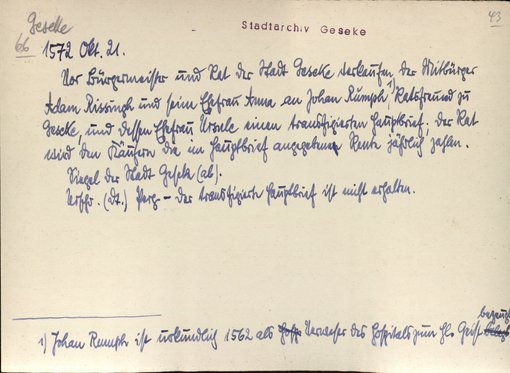 Geseke
66
Stadtarchiv Geseke
43
1572 Okt. 21.
Vor Bürgermeister und Rat der Stadt Geseke verkaufen der Mitbürger
Adam Rissingh und seine Ehefrau Anna an Johan Rumph 1), Ratsfreund zu
Geseke, und dessen Ehefrau Ursele einen transfigierten Hauptbrief; der Rat
wird den Käufern die im Hauptbrief angegebene Rente jährlich zahlen.
Siegel der Stadt Geseke (ab).
Urschr. (dt.) Perg - Der transfigierte Hauptbrief ist nicht erhalten.
1) Johan Rumph ist urkundlich 1562 als Verweser des Hospitals zum Hl. Geist bezeugt